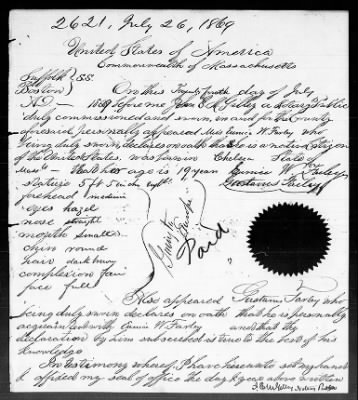 2621, July 26, 1869
United States of America
Commonwealth of Massachusetts
Suffolk } SS.
Boston }
On this Twenty fourth day of July
A.D. 1869 before me John E. a Notary Public
duly commissioned and sworn, in and for the County
aforesaid, personally appeared Miss Eunice W. Farley who
being duly sworn declares on oath that he is a native & citizen
of the United States, was born in Chelsea State of
Mass that her age is 19 years Eunice W. Farley
stature 5 ft 5 inch Gustavus Farley
forehead medium
eyes hazel
nose straight
mouth small
chin round
hair dark
complexion fair
face full
Sent
Paid
Also appeared Gustavus Farley who
being duly sworn declares on oath that he is personally
acquainted with Eunice W. Farley and that the
declaration by him subscribed is true to the best of his
knowledge
In testimony whereof I have hereunto set my hand &
affixed my seal of office the day & year above written
Notary Public